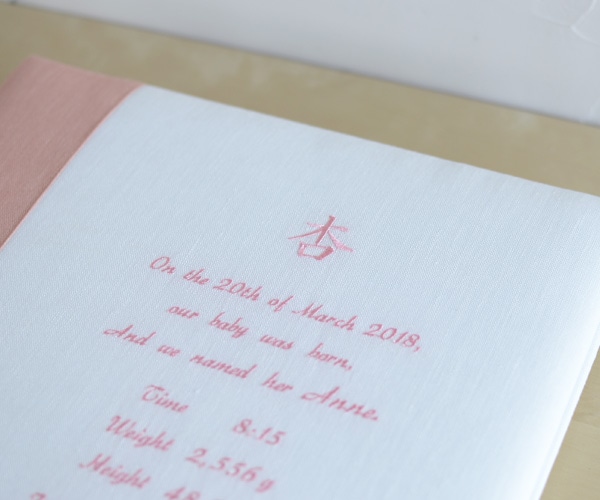 杏
On the 20th of March 2018,
our baby was born,
And we named her Anne.
Time 8:15
Weight 2,556g
Height 48